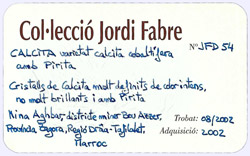 Col·lecció Jordi Fabre
Nº JFD54
CALCITA varietat calcita cobaltífera
amb Pirita
Cristalls de Calcita molt definits de color intens,
no molt brillants i amb Pirita
Mina Aghbar, districte miner Bou Azzer,
Província Zagora, Regió Drâa-Tafilalet,
Marroc
Trobat: 08/2002
Adquisició: 2002